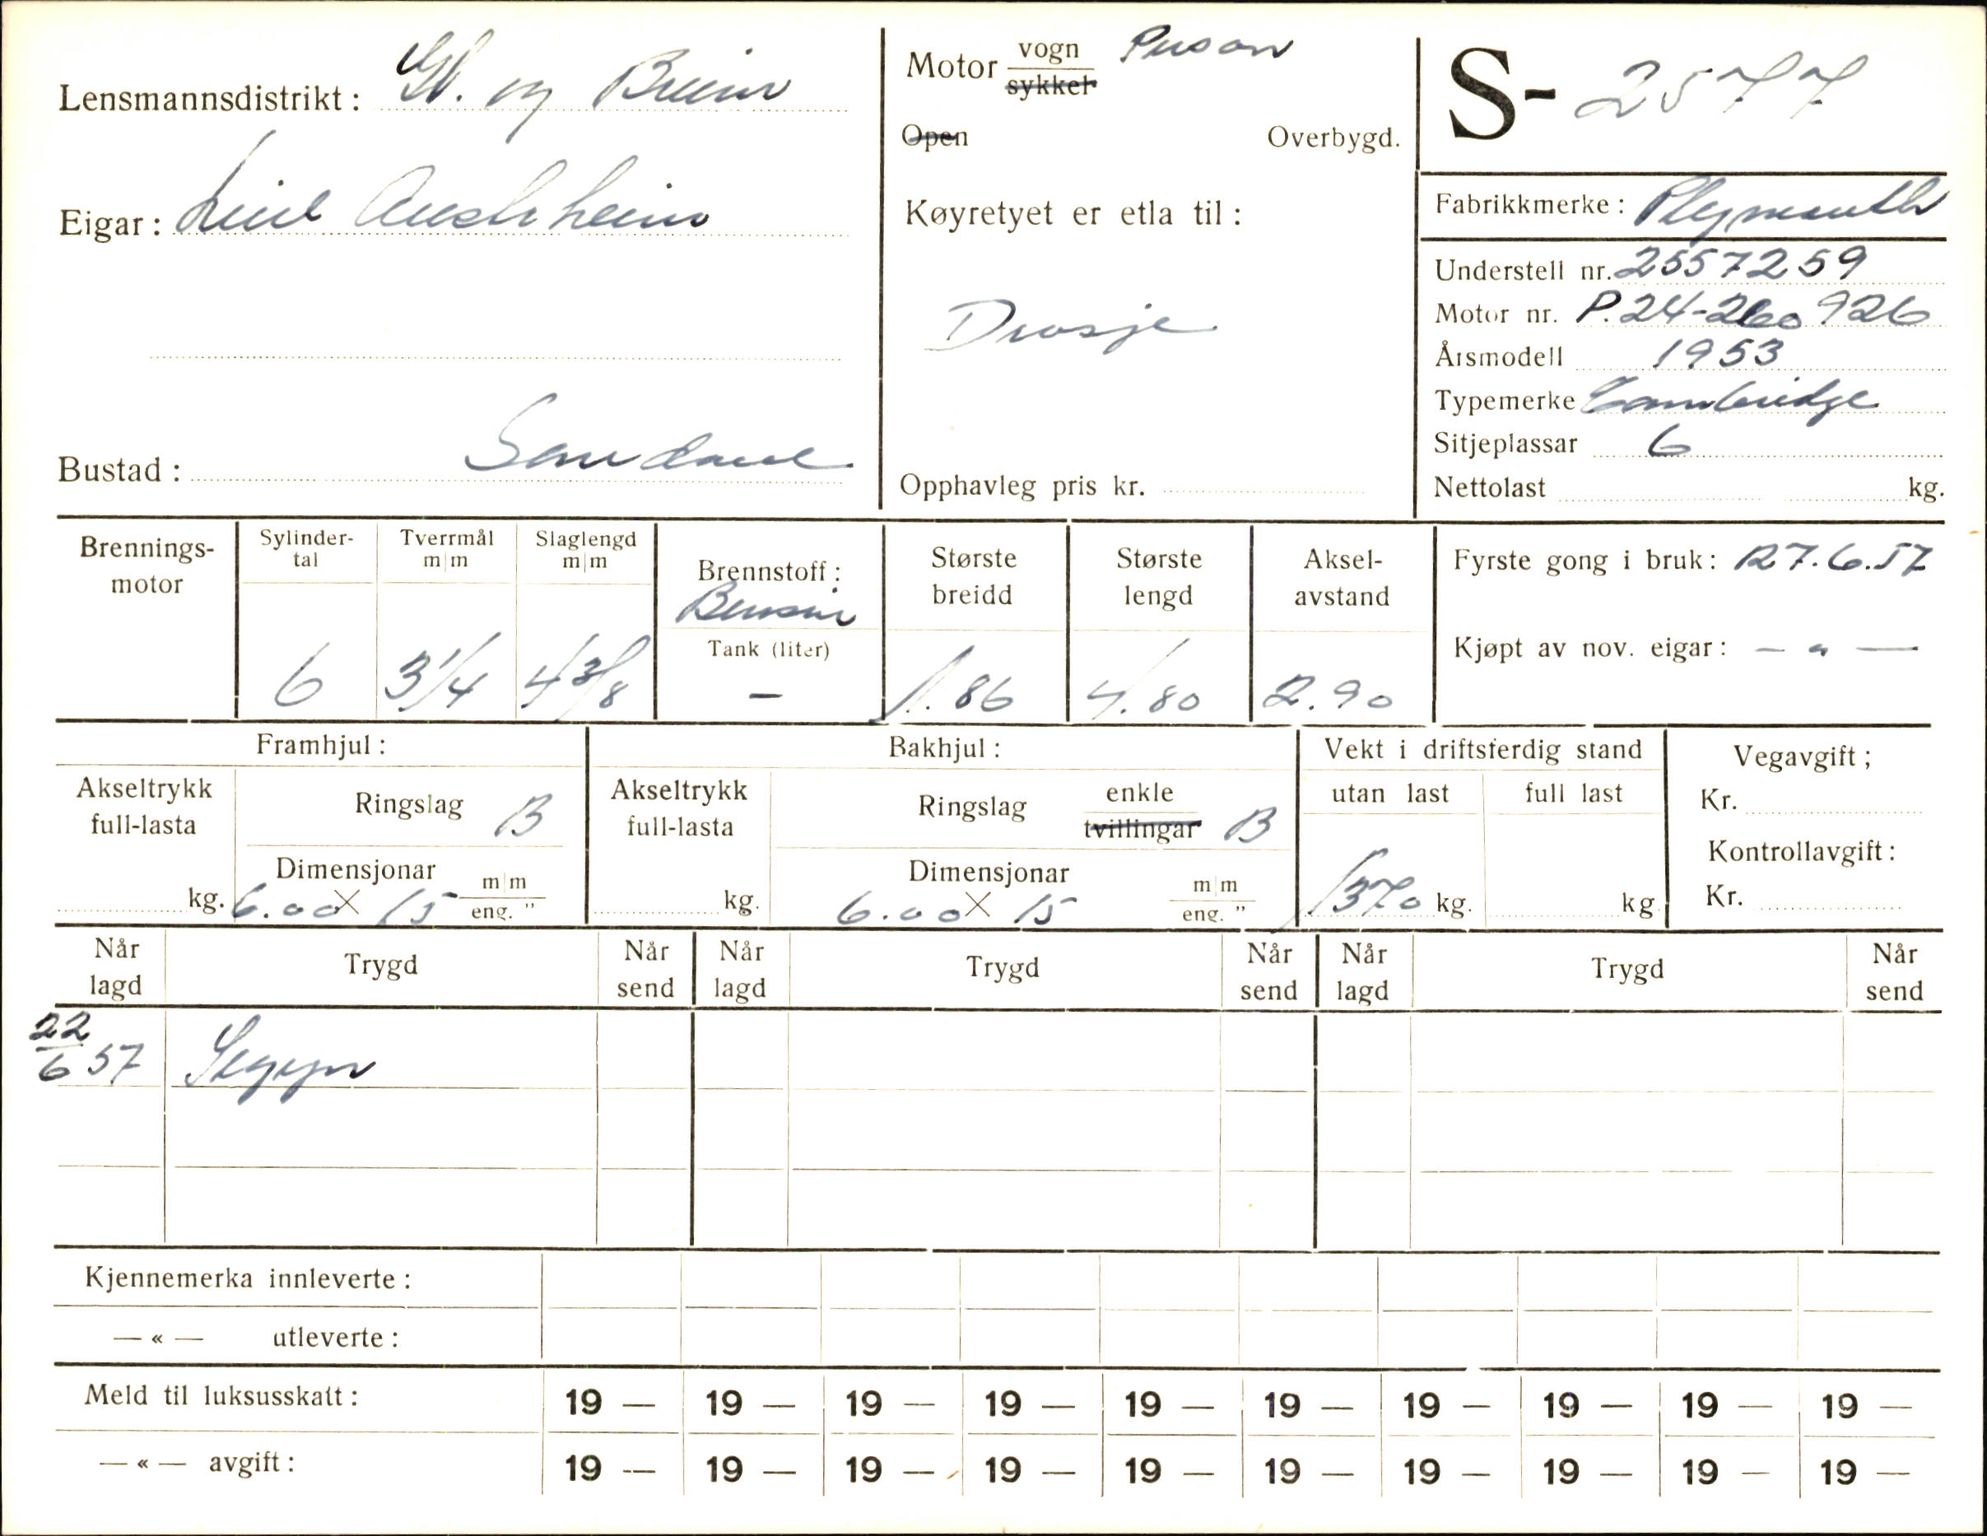 Lensmannsdistrikt: Gl. og Breim
Eigar: Austrheim
Bustad: Sandane
Motor vogn Person
sykkel
Open Overbygd.
Køyretyet er etla til:
Drosje
Opphavleg pris kr.
S- 2577
Fabrikkmerke: Plymouth
Understell nr. 2557259
Motor nr. P.24-260926
Årsmodell 1953
Typemerke Cambridge
Sitjeplassar 6
Nettolast kg.
Brennings-motor
Sylinder-tal 6
Tverrmål m|m 3 1/4
Slaglengd m|m 4 3/8
Brennstoff: Bensin
Tank (liter) —
Største breidd 1.86
Største lengd 4.80
Aksel-avstand 2.90
Fyrste gong i bruk: R 7.6.57
Kjøpt av nov. eigar: — " —
Framhjul:
Akseltrykk full-lasta kg.
Ringslag B
Dimensjonar 6.00 X 15 m|m eng. "
Bakhjul:
Akseltrykk full-lasta kg.
Ringslag enkle tvillingar B
Dimensjonar 6.00 X 15 m|m eng. "
Vekt i driftsferdig stand
utan last 1370 kg.
full last kg
Vegavgift;
Kr.
Kontrollavgift:
Kr.
Når lagd Trygd Når send Når lagd Trygd Når send Når lagd Trygd Når send
22/6 57 Stygyn
Kjennemerka innleverte:
— « — utleverte:
Meld til luksusskatt: 19 — 19 — 19 — 19 — 19 — 19 — 19 — 19 — 19 — 19 —
— « — avgift: 19 — 19 — 19 — 19 — 19 — 19 — 19 — 19 — 19 — 19 —